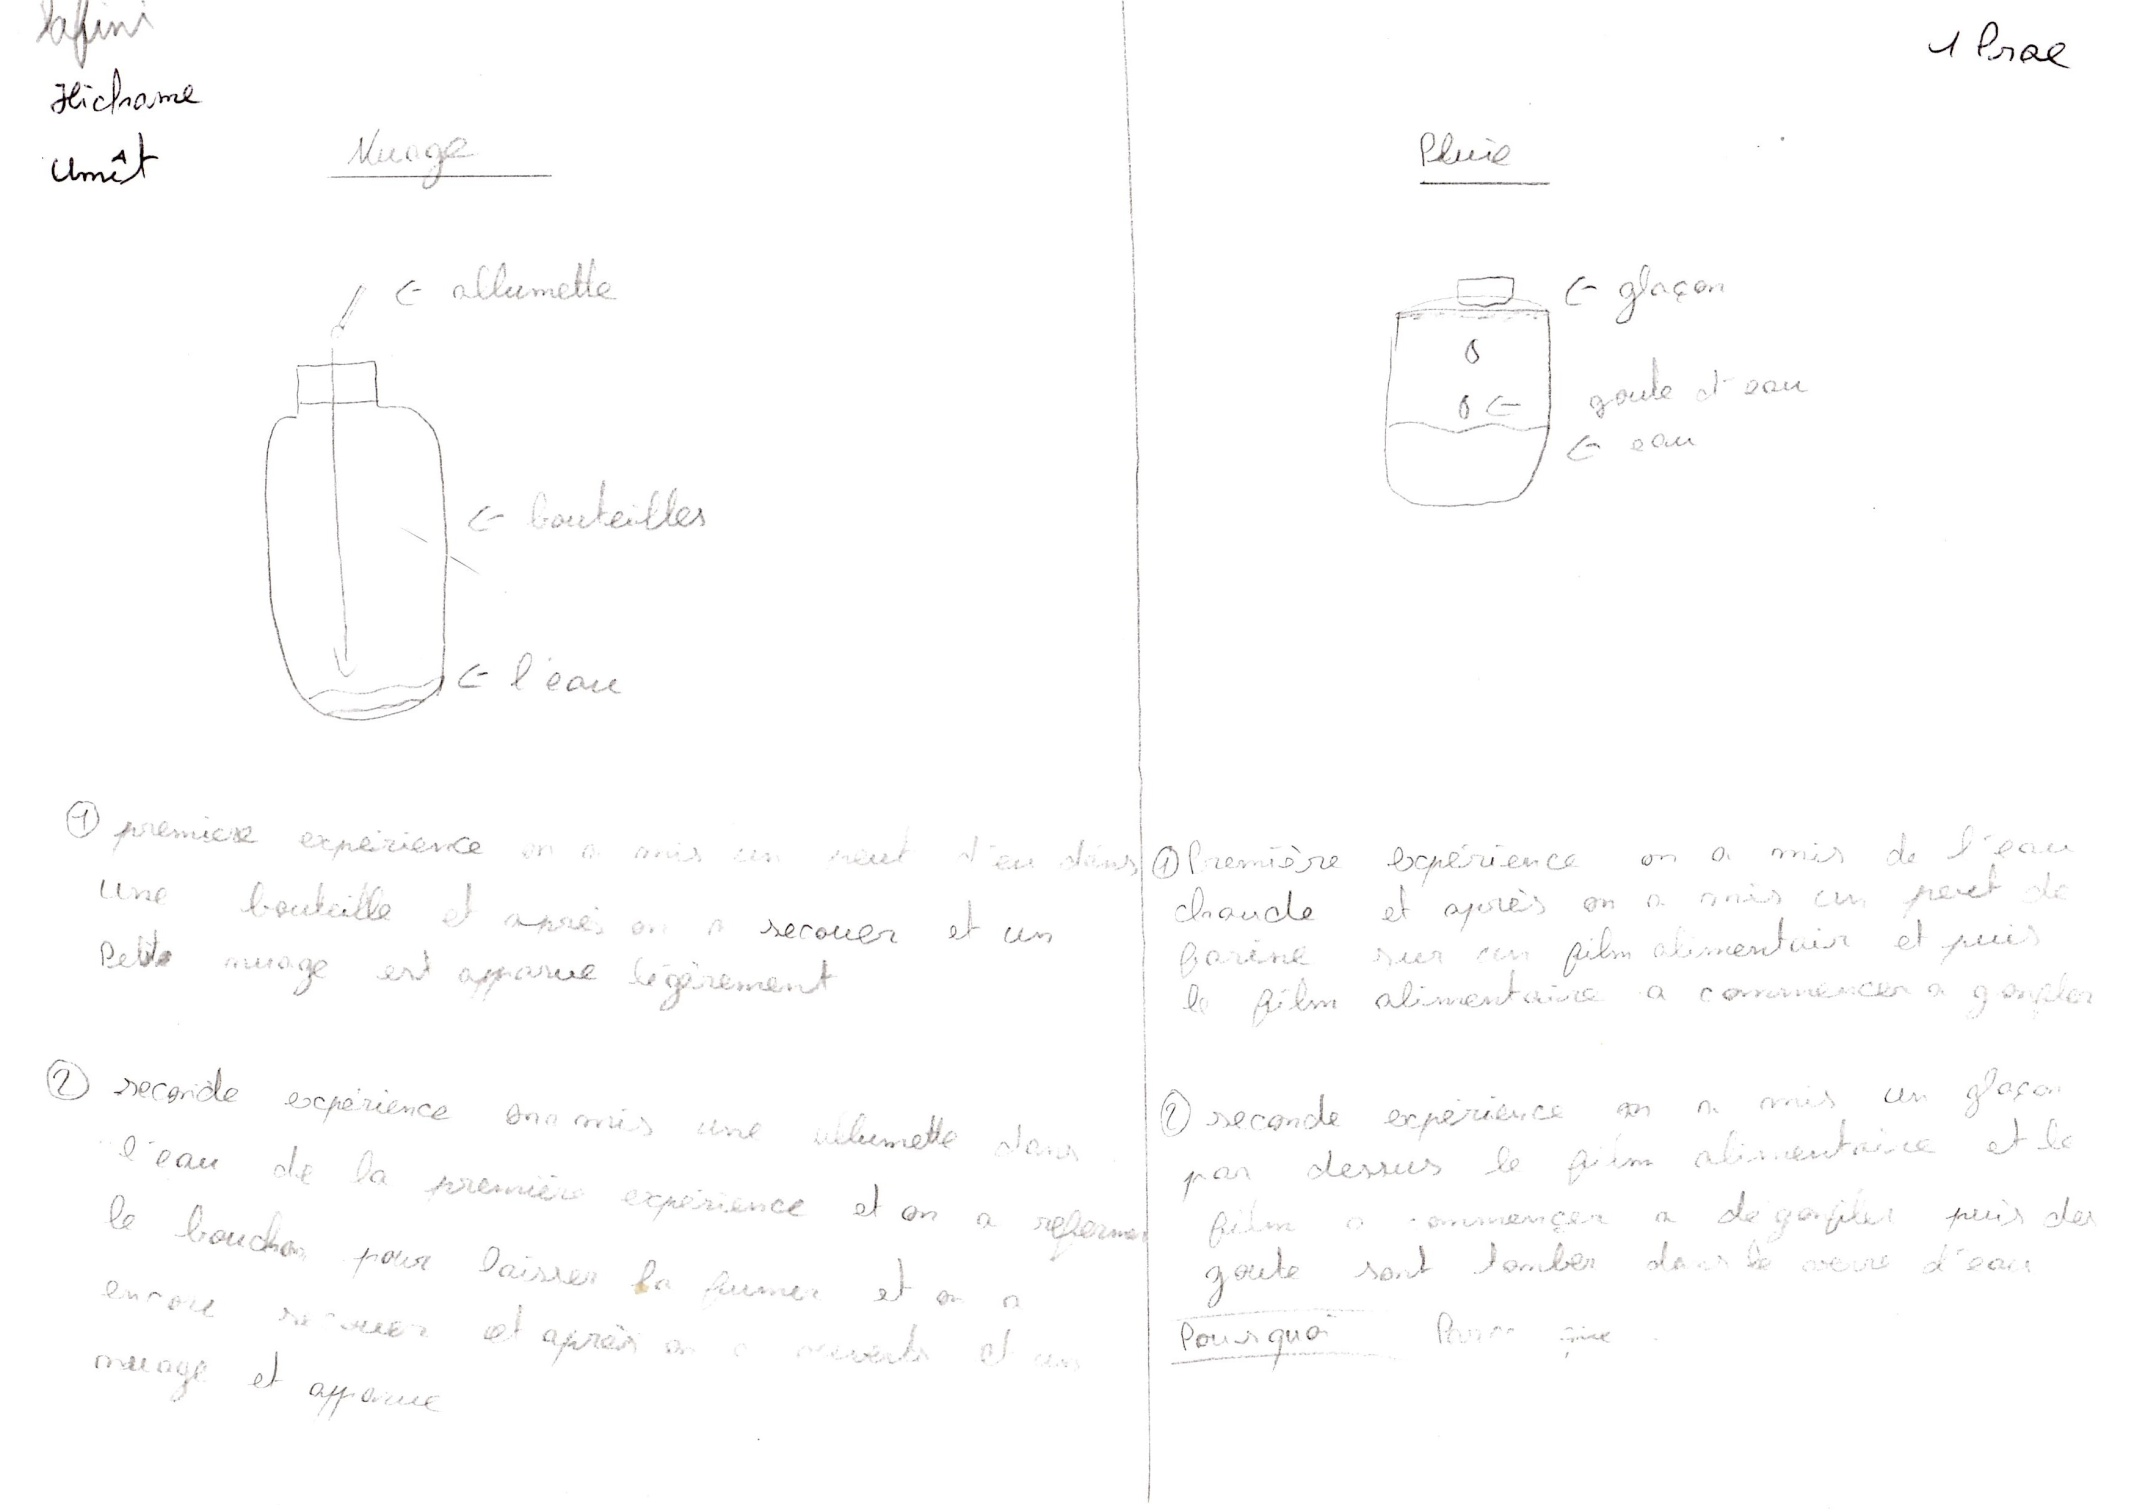 Safini
Hichame
Umît
1 Prae
Nuage
← allumette
← bouteilles
← l'eau
① premiere expérience on a mis un peut d'eu dans
une bouteille et après on a secouer et un
Petit nuage est apparue légèrement
② seconde expérience on a mis une allumette dans
l'eau de la première expérience et on a refermer
le bouchon pour laisser la fumer et on a
encore secouer et après on a ouverts et un
nuage et apparue
Pluie
← glaçon
← goute d'eau
← eau
① Première expérience on a mis de l'eau
chaude et après on a mis un peut de
farine sur un film alimentair et puis
le film alimentaire a commencer a gonfler
② seconde expérience on a mis un glaçon
par dessus le film alimentaire et le
film a commençer a dégonfler puis des
goute sont tomber dans le verre d'eau
Pourquoi Parce que